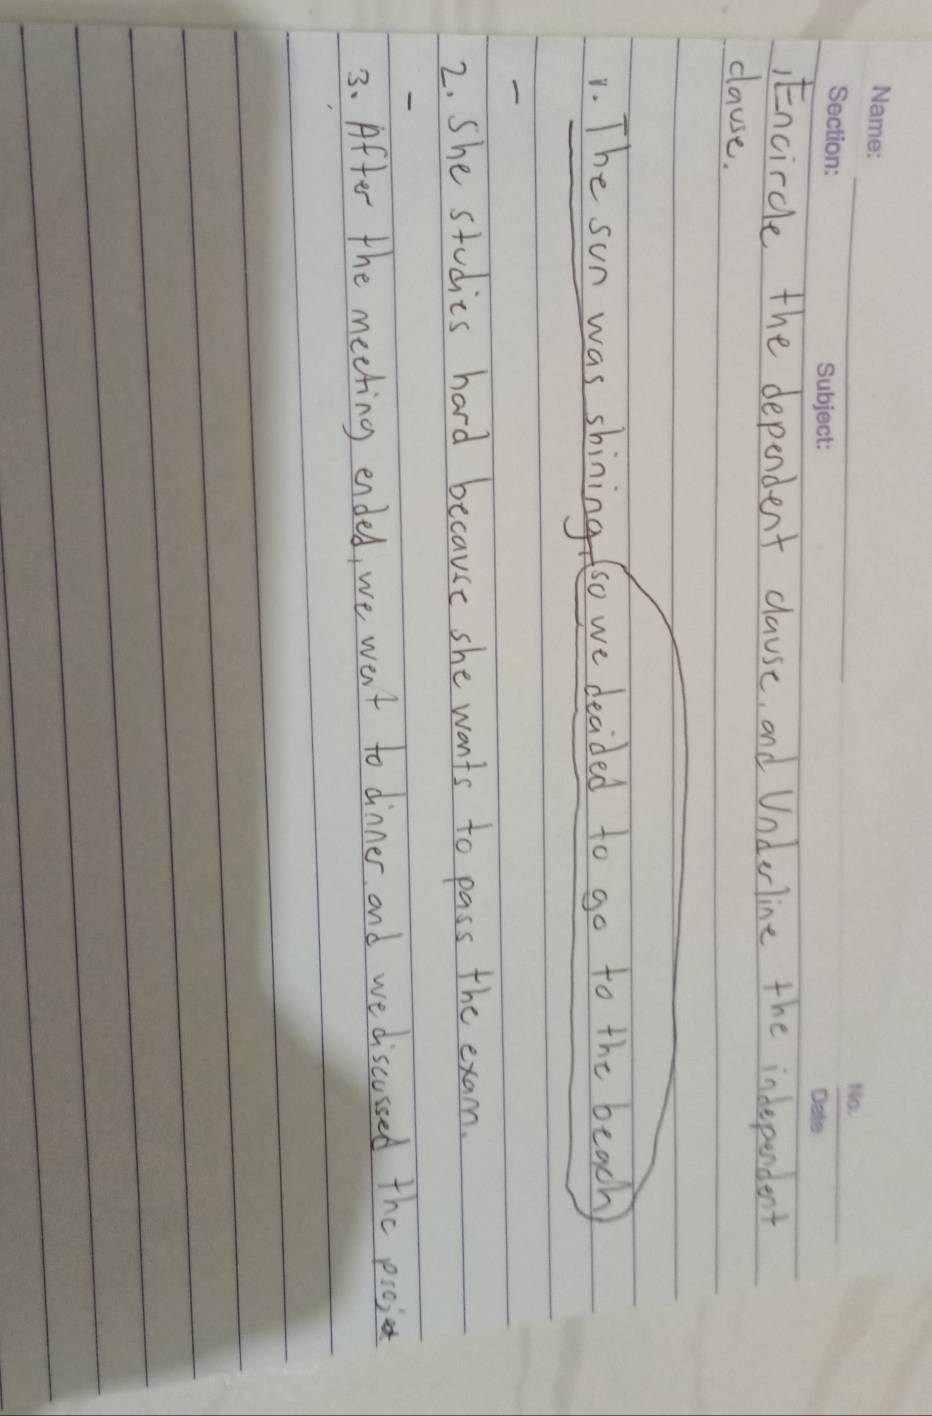 Name:
No.
Section: Subject: Date:
Encircle the dependent clause, and Underline the independent
clause.
1. The sun was shining, so we decided to go to the beach
-
2. She studies hard because she wants to pass the exam.
-
3. After the meeting ended, we went to dinner, and we discussed the project